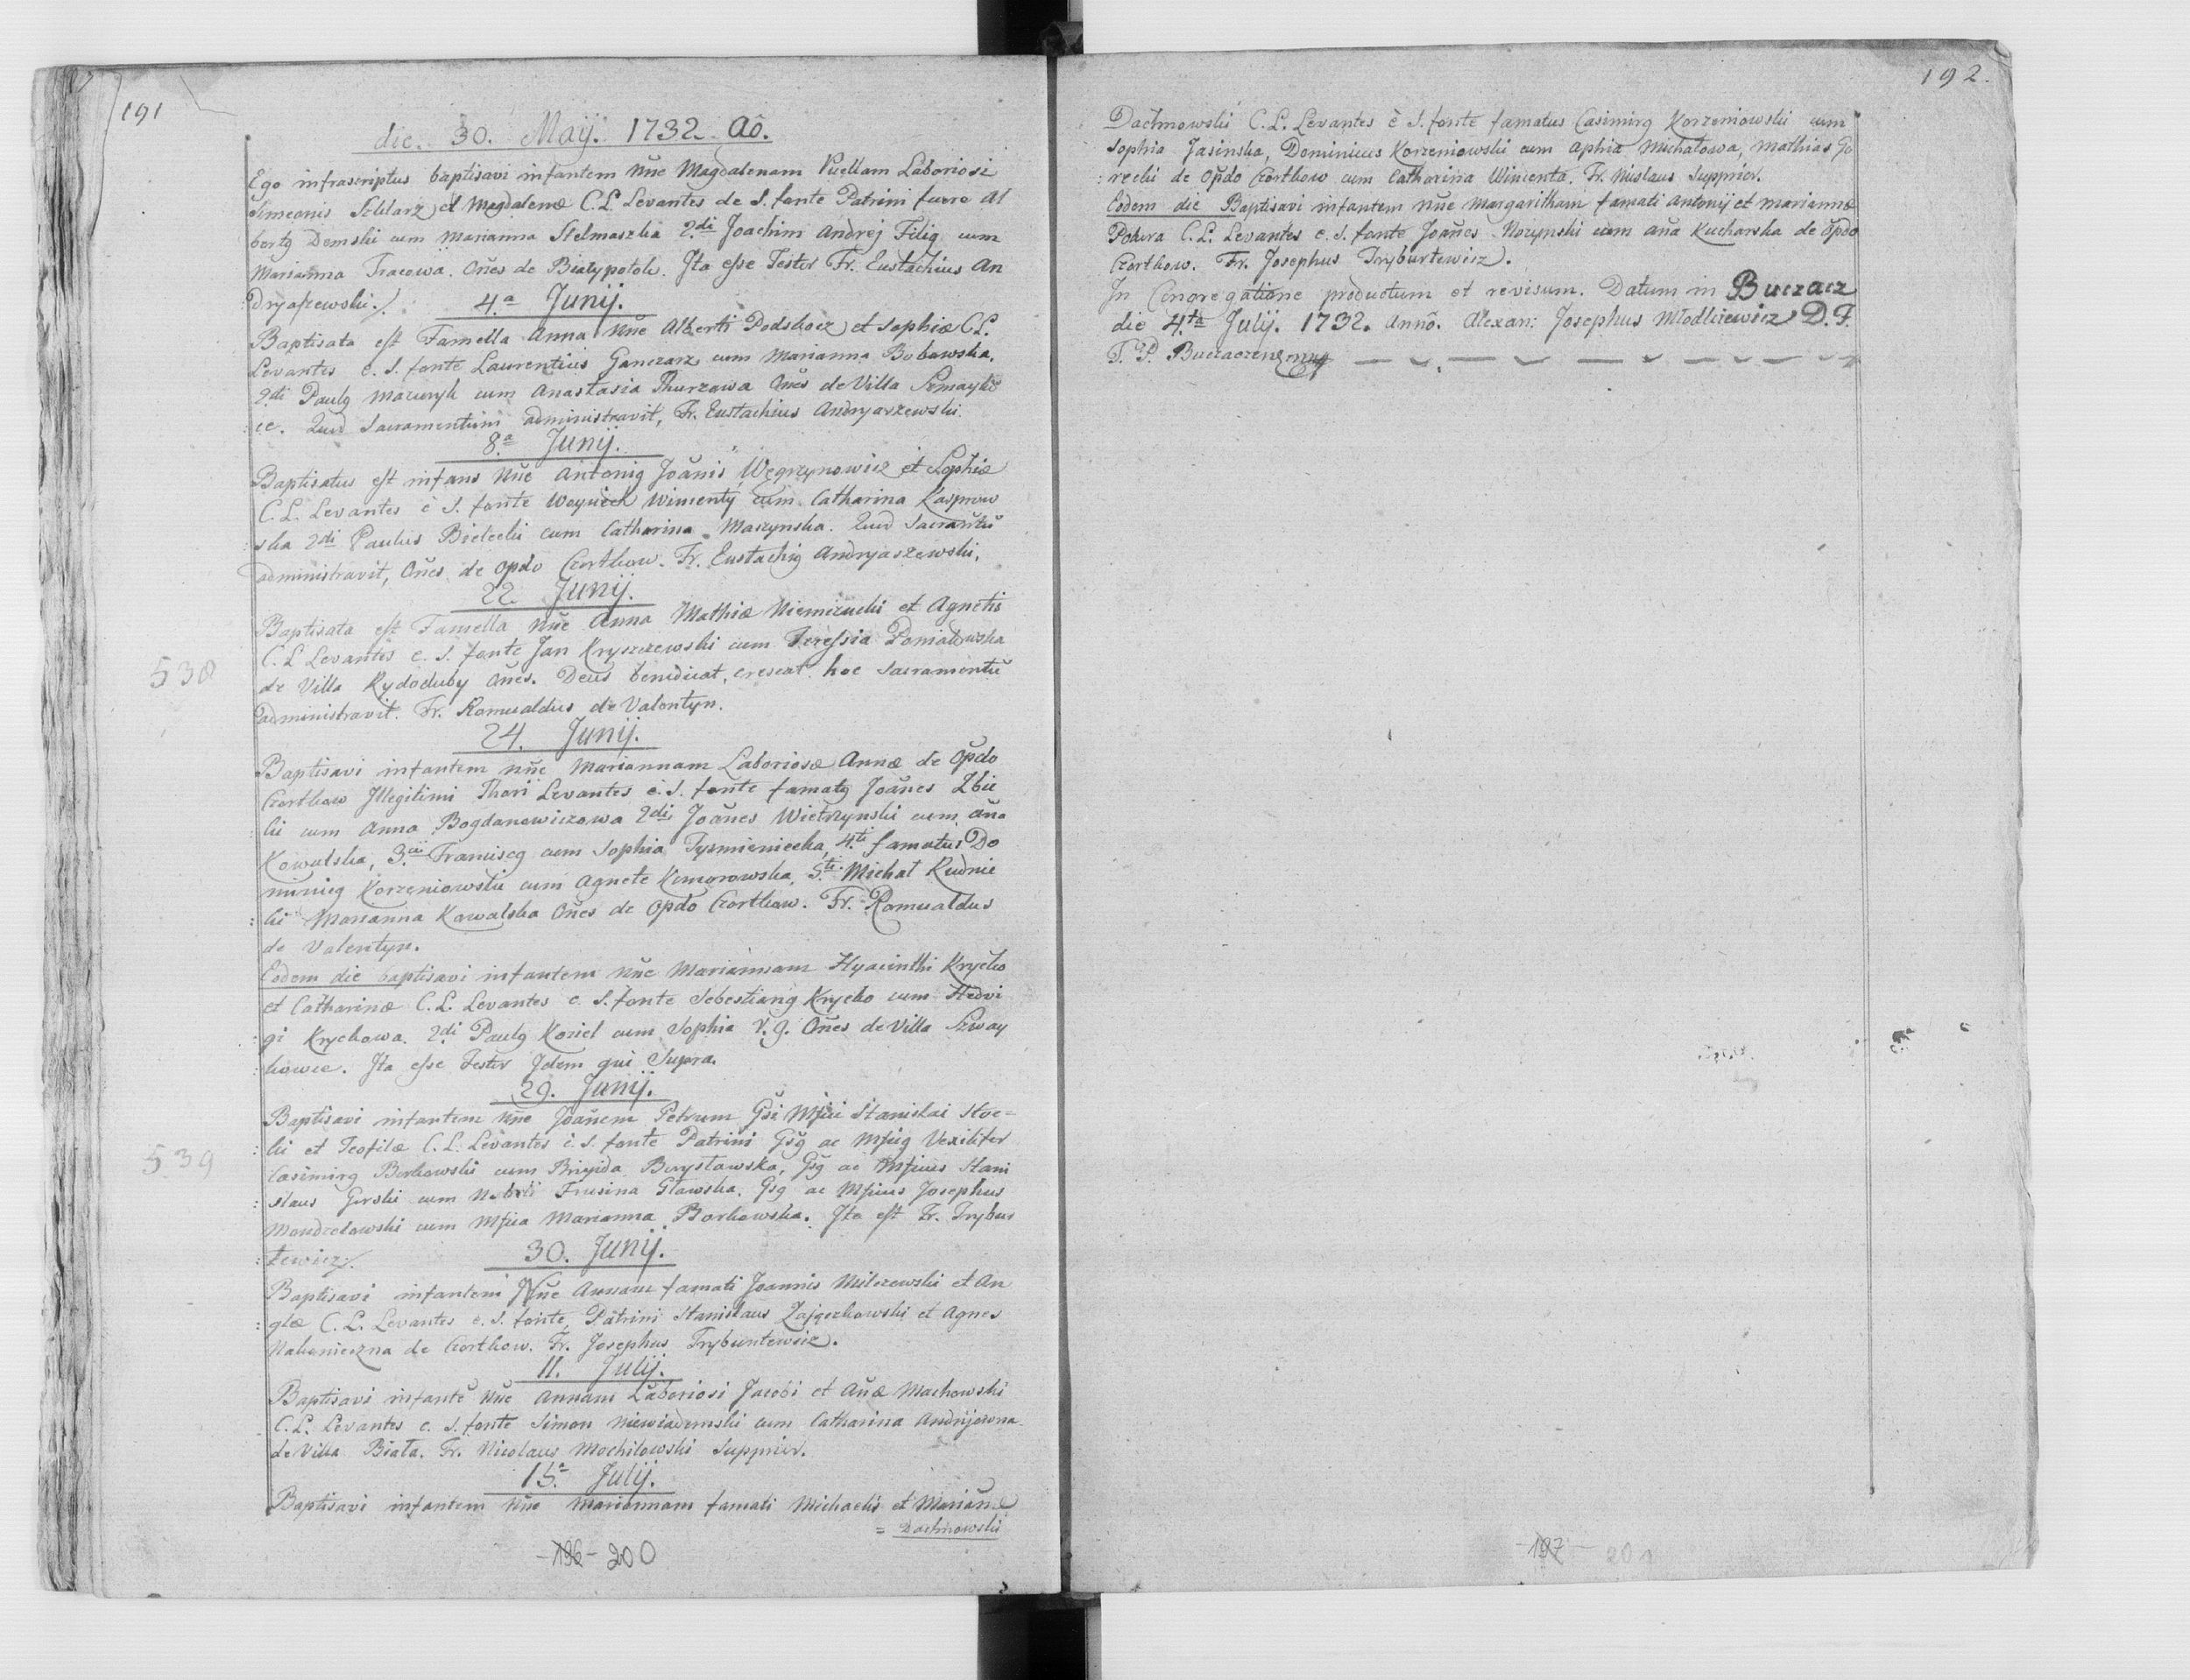 191
die. 30. Maÿ. 1732. Aô.
Ego infrascriptus baptisavi infantem Nñe Magdalenam Puellam Laboriosi
Simeonis Szklarz et Magdalenæ C.L. Levantes de S. fonte Patrini fuere Al
bertg Demski cum Marianna Stelmaszka 2.di Joachim Andrej Filig cum
Marianna Tracowa. Oñes de Białypotok. Jta esse Testor Fr. Eustachius An
:dryaszewski. 4.a Junij.
Baptisata est Famella Anna Nñe Alberti Podskocz et Sophiæ C.L.
Levantes e. S. fonte Laurentius Ganczarz cum Marianna Bobowska.
2.di Paulg Mazuryk cum Anastasia Thurzawa Oñes de Villa Szmayko
:ce. Quod Sacramentum administravit, Fr. Eustachius Andryaszewski.
8.a Junij.
Baptisatus est infans Nñe Antonig Joãnis Węgrzynowicz et Sophiæ
C.L. Levantes è S. fonte Woyciech Wimenty cum Catharina Kasprow
:ska 2di Paulus Bielecki cum Catharina Maszynska. Quod Sacrañtũ
administravit, Oñes de Opdo Czortkow. Fr. Eustachig Andryaszewski.
22. Junij.
Baptisata est Famella Nñe Anna Mathiæ Niemizucki et Agnetis
C.L Levantes e. S. fonte Jan Kryszczewski cum Teressia Poniatowska
de Villa Rydoduby Oñes. Deus benedicat, crescat hoc Sacramentũ
administravit. Fr. Romualdus de Valentyn.
538
24. Junij.
Baptisavi infantem Nñe Mariannam Laboriosæ Annæ de Opdo
Czortkow Jllegitimi Thori Levantes è. S. fonte famatg Joãnes Zbic
:ki cum Anna Bogdanowiczowa 2di Joãnes Wietrzynski cum Aña
Kowalska, 3.cii Franciscg cum Sophia Tysmieniecka, 4.ti famatus Do
minicg Korzeniowski cum Agnete Komorowska, 5.ti Michał Rudnic
:ki Marianna Kowalska Oñes de Opdo Czortkow. Fr. Romualdus
de Valentyn.
Eodem die baptisavi infantem Nñe Mariannam Hyacinthi Krycko
et Catharinæ C.L. Levantes e. S. fonte Sebestiang Krycko cum Hedvi
:gi Kryckowa. 2.di Paulg Koziel cum Sophia V.g. Oñes de Villa Szway
:kowce. Jta esse Testor Jdem qui Supra.
29. Junij.
Baptisavi infantem Nñe Joãnem Petrum Gsi Mfici Stanislai Skoc=
:ki et Teofilæ C.L. Levantes è S. fonte Patrini Gsg ac Mficg Vexilifer
Casimirg Borkowski cum Brigida Berystawska, Gsg ac Mficus Stani
:slaus Gorski cum Nobili Frusina Gławska. Gsg ac Mficus Josephus
Mondzelowski cum Mfica Marianna Borkowska. Jta est Fr. Trybun
:tewicz. 30. Junij.
539
Baptisavi infantem Nñe Annam famati Joannis Milczewski et An
:glæ C.L. Levantes e. S. fonte, Patrini Stanislaus Zajęczkowski et Agnes
Nakonieczna de Czortkow. Fr. Josephus Trybuntewicz.
11. Julij.
Baptisavi infantẽ Nñe Annam Laboriosi Jacobi et Añæ Machowski
C.L. Levantes e. S. fonte Simon Niewiadomski cum Catharina Andrijowna
de Villa Biała. Fr. Nicolaus Mochilowski Supprior.
15.a Julij.
Baptisavi infantem Nñe Mariannam famati Michaelis et Mariañæ
= Dachnowski
-196- 200
192.
Dachnowski C.L. Levantes è S. fonte famatus Casimirg Korzeniowski cum
Sophia Jasinska, Dominicus Korzeniowski cum Aphia Michałowa, Mathias Go
:recki de Opdo Czortkow cum Catharina Wimenta. Fr. Nicslaus Supprior.
Eodem die Baptisavi infantem Nñe Margaritham famati Antonij et Mariannæ
Pokora C.L. Levantes e. S. fonte Joãnes Nozynski cum Aña Kucharska de Opdo
Czortkow. Fr. Josephus Tryburtewicz.
Jn Congregatione productum et revisum. Datum in Buczacz
die 4.ta Julij. 1732. Annô. Alexan: Josephus Młodkiewicz D.F.
-197- 201